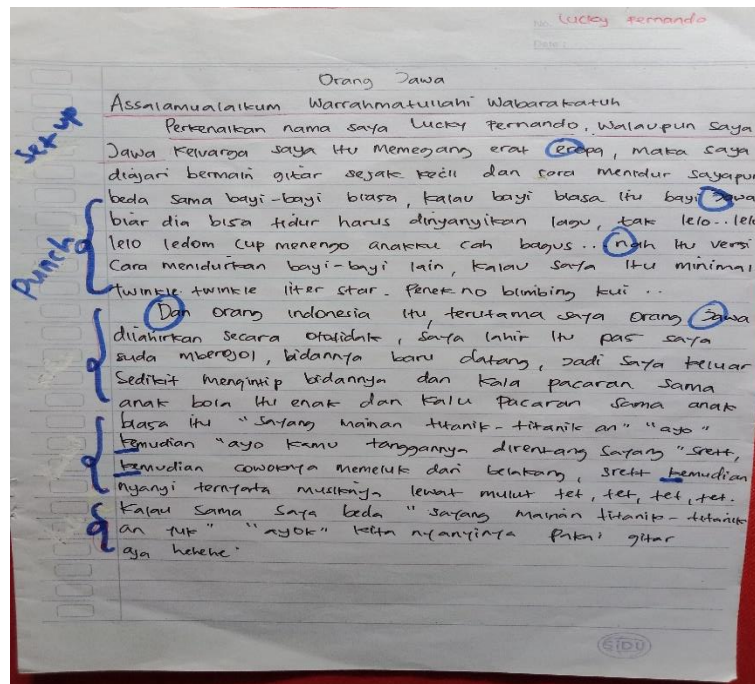 No. Lucky Fernando
Date :
Orang Jawa
Assalamualaikum Warrahmatullahi Wabarakatuh
Set up
Perkenalkan nama saya Lucky Fernando, Walaupun saya
Jawa Keluarga saya itu memegang erat eropa, maka saya
diajari bermain gitar sejak kecil dan cara menidur sayapun
beda sama bayi-bayi biasa, kalau bayi biasa itu bayi Jawa
Punch
biar dia bisa tidur harus dinyanyikan lagu, tak lelo.. lelo
lelo ledom cup menengo anakku cah bagus .. nah itu versi
Cara menidurkan bayi-bayi lain, kalau saya itu minimal
twinkle twinkle liter star. Penek no blimbing kui ..
Dan orang indonesia itu, terutama saya orang Jawa
dilahirkan secara otodidak, saya lahir itu pas saya
suda mberojol, bidannya baru datang, Jadi saya keluar
Sedikit mengintip bidannya dan kala pacaran sama
anak bola itu enak dan kalu pacaran sama anak
biasa itu "sayang mainan titanik-titanik an" "ayo"
kemudian "ayo kamu tanggannya direntang sayang" srett,
kemudian cowoknya memeluk dari belakang, srett kemudian
nyanyi ternyata musiknya lewat mulut tet, tet, tet, tet.
Kalau sama saya beda "sayang mainan titanik-titanik
an yuk" "ayok" kita nyanyinya pakai gitar
aja hehehe.
SIDU